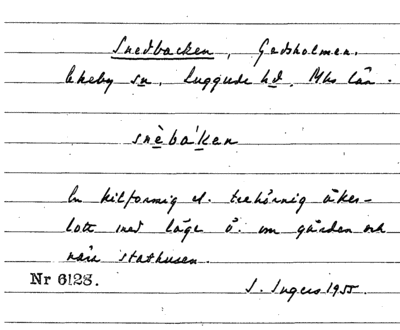 Snedbacken, Gedsholmen.
Ekeby sn, Luggude hd, Mhs län.
snèbák̲en
En kilformig el. trehörnig åker-
lott med läge ö. om gården och
nära stathusen.
Nr 6128.
I. Ingers 1955.